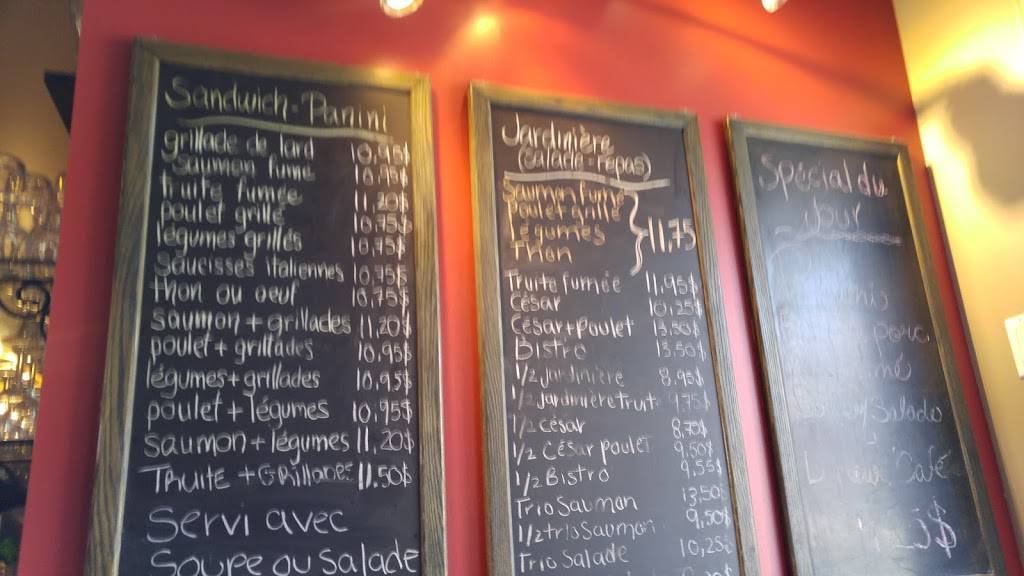 Sandwich-Panini
grillade de lard 10.95$
saumon fumé 10.75$
truite fumée 11.20$
poulet grillé 10.75$
légumes grillés 10.75$
saucisses italiennes 10.75$
thon ou oeuf 10.75$
saumon + grillades 11.20$
poulet + grillades 10.95$
légumes + grillades 10.95$
poulet + légumes 10.95$
saumon + légumes 11.20$
TRUITE + GRILLADES 11.50$
Servi avec
Soupe ou Salade
Jardinière
(salade-repas)
Saumon fumé
Poulet grillé
Légumes
Thon
11,75
Truite fumée 11,95$
César 10,25$
César+poulet 13,50$
Bistro 13,50$
1/2 jardinière 8,95$
1/2 Jardinière truite 9,75$
1/2 César 8,70$
1/2 César poulet 9,50$
1/2 Bistro 9,55$
Trio Saumon 13,50$
1/2 trio Saumon 9,50$
Trio Salade 10,25$
Spécial du
Jour
Salade
Café
$